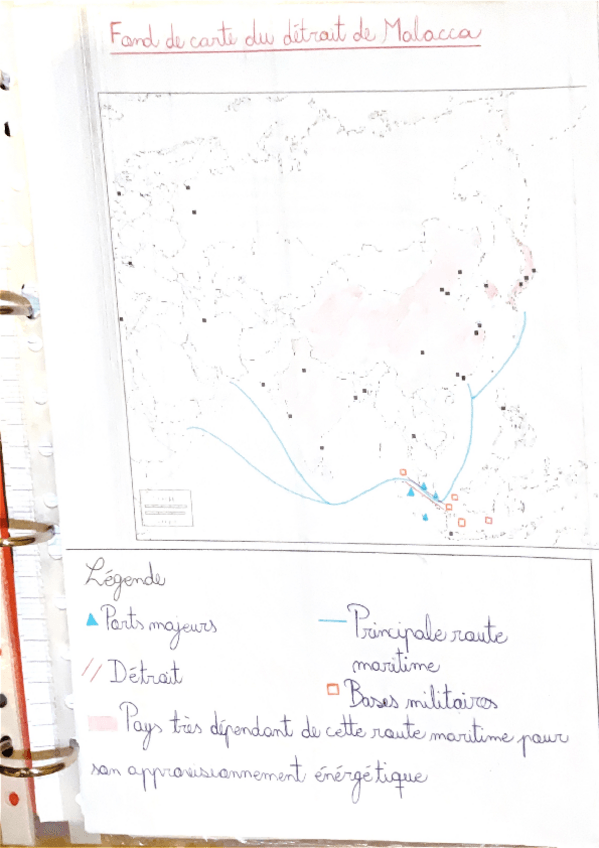 Fond de carte du détroit de Malacca
Légende
Ports majeurs
Principale route
maritime
Détroit
Bases militaires
Pays très dépendant de cette route maritime pour
son approvisionnement énérgétique